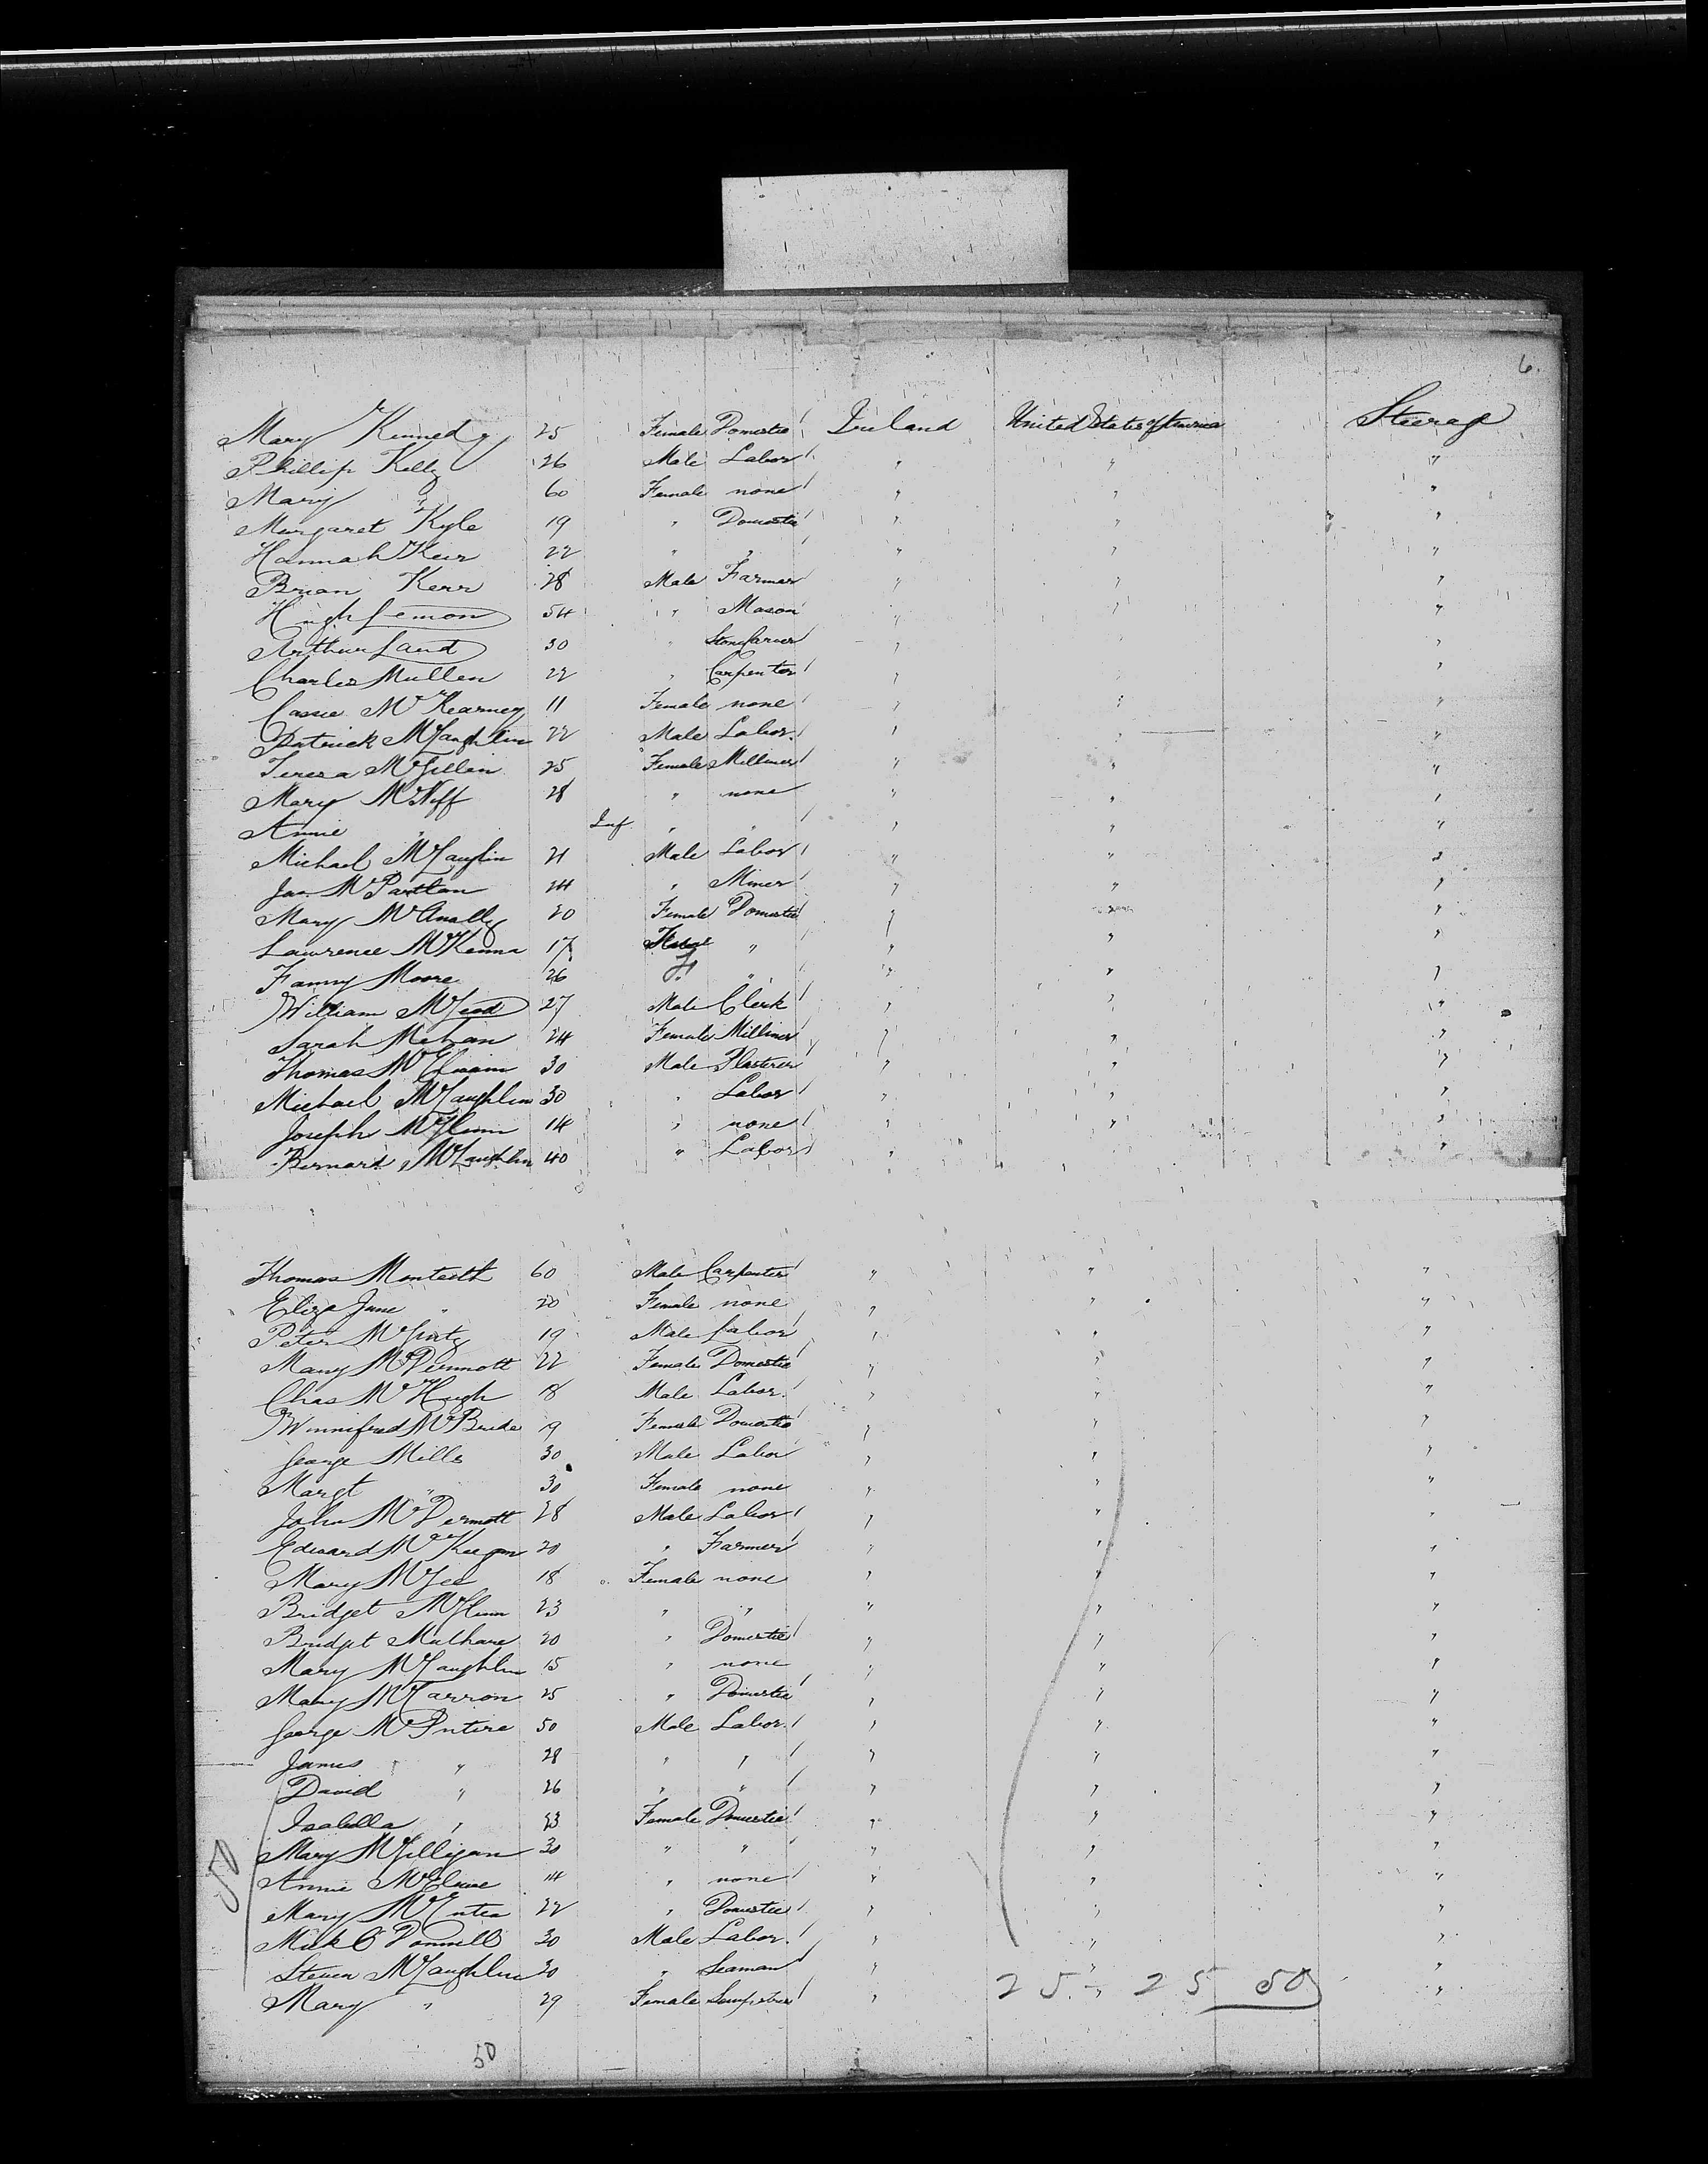 6.
Mary Kennedy 25 Female Domestic Ireland United States of America Steerage
Phillip Kelly 26 Male Labor " " "
Mary " 60 Female none " " "
Margaret Kyle 19 " Domestic " " "
Hannah Keir 22 " " " " "
Brian Kerr 28 Male Farmer " " "
Hugh Lemon 54 " Mason " " "
Arthur Laird 30 " Stone Carver " " "
Charles Mullen 22 " Carpenter " " "
Cassie McKearney 11 Female none " " "
Patrick McLaughlin 22 Male Labor " " "
Teresa McGillen 25 Female Milliner " " "
Mary McNiff 28 " none " " "
Annie " Inf. " " " " "
Michael McLauglin 21 Male Labor " " "
Jas. McPartlan 24 " Miner " " "
Mary McAnally 20 Female Domestic " " "
Lawrence McKenna 17 " " " "
Fanny Moore 26 F. " " " "
William McLeod 27 Male Clerk " " "
Sarah Mehan 24 Female Milliner " " "
Thomas 30 Male Plasterer " " "
Michael McLaughlin 30 " Labor " " "
Joseph McGlinn 14 " none " " "
Bernard McLaughlin 40 " Labor " " "
Thomas Monteith 60 Male Carpenter " " "
Eliza Jane " 20 Female none " " "
Peter McGinty 19 Male Labor " " "
Mary McDermott 22 Female Domestic " " "
Chas McHugh 18 Male Labor " " "
Winnifred McBride 19 Female Domestic " " "
George Mills 30 Male Labor " " "
Margt " 30 Female none " " "
John McDermott 28 Male Labor " " "
Edward McKeegan 20 " Farmer " " "
Mary McGee 18 Female none " " "
Bridget McGlinn 23 " " " " "
Bridget Mulhare 20 " Domestic " " "
Mary McLaughlin 15 " none " " "
Mary McCarron 25 " Domestic " " "
George McIntire 50 Male Labor " " "
James " 28 " " " " "
David " 26 " " " " "
Isabella " 23 Female Domestic " " "
Mary McGilligan 30 " " " " "
Annie 14 " none " " "
Mary 22 " Domestic " " "
Mick O'Donnell 30 Male Labor " " "
Steven McLaughlin 30 " Seaman " " "
Mary " 29 Female " " "
25 - 25 50
50
50